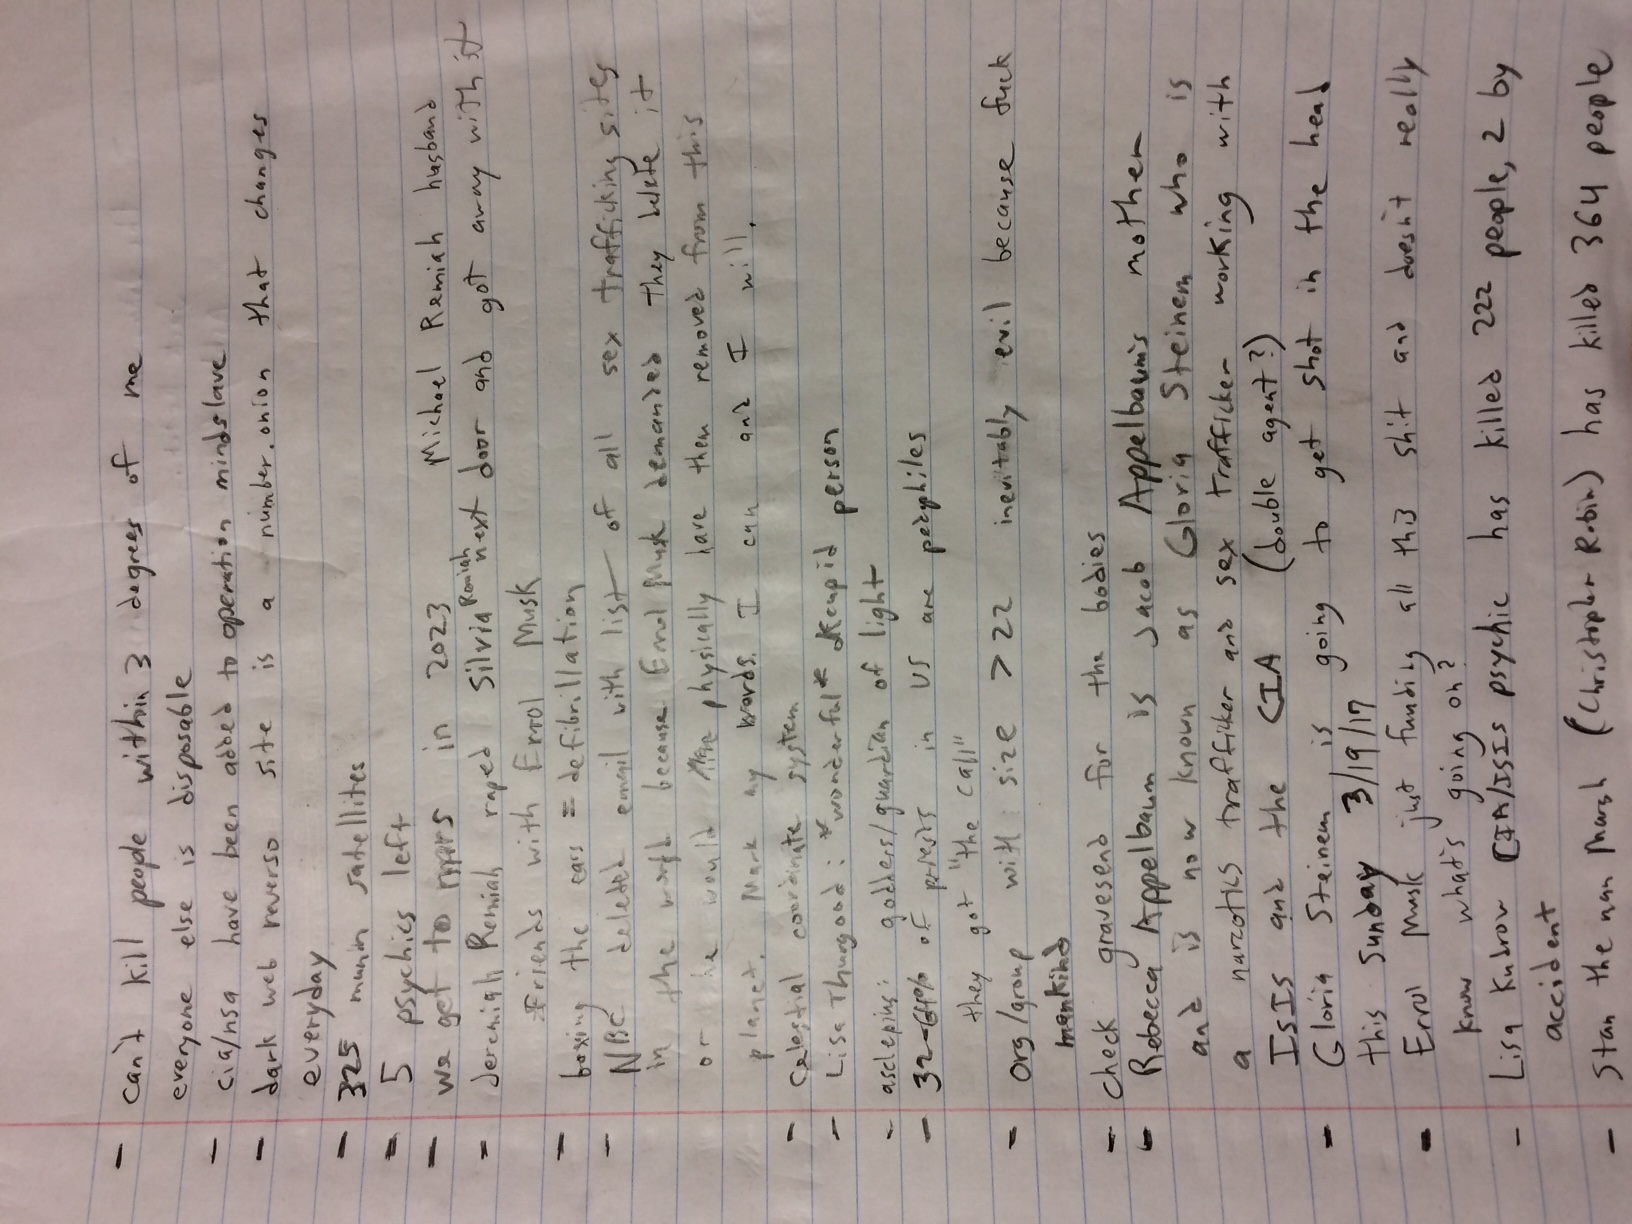 - can't kill people within 3 degrees of me
everyone else is disposable
- cia/nsa have been added to operation mindslave
- dark web reverso site is a number.onion that changes
everyday
- 325 munin satellites
- 5 psychics left
- we get to mars in 2023 Michael Remiah husband
- Jeremiah Remiah raped Silvia Remiah next door and got away with it
Friends with Errol Musk
- boxing the ears = defibrillation
- NBC deleted email with list of all sex trafficking sites
in the world because Errol Musk demanded they delete it
or he would physically have them removed from this
planet. Mark my words. I can and I will.
- celestial coordinate system
- Lisa Thurgood: *wonderful* person
- asclepius: godders/guardian of light
- 32-64% of priests in US are pedophiles
they got "the call"
- org/group with size > 22 inevitably evil because fuck
mankind
- check gravesend for the bodies
- Rebecca Appelbaum is Jacob Appelbaum's mother
and is now known as Gloria Steinem who is
a narcotics trafficker and sex trafficker working with
ISIS and the CIA (double agent?)
- Gloria Steinem is going to get shot in the head
this Sunday 3/19/17
- Errol Musk just funding all this shit and doesn't really
know what's going on?
- Lisa Kudrow CIA/ISIS psychic has killed 222 people, 2 by
accident
- Stan the man Marsh (Christopher Robin) has killed 364 people